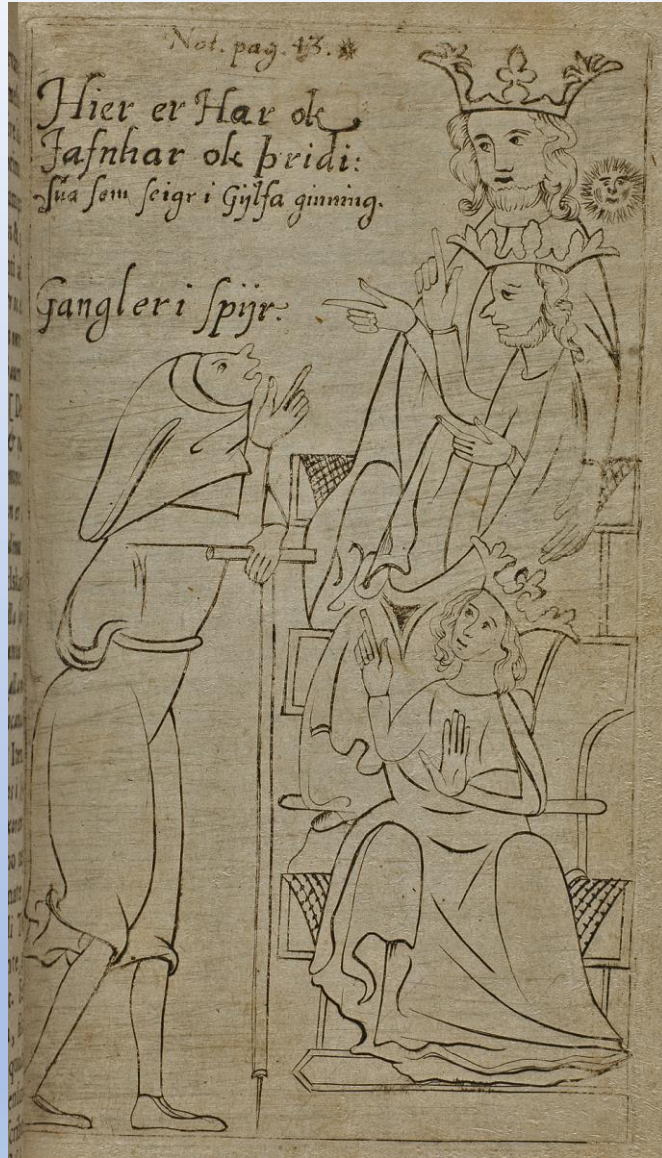 Not. pag. 43. *
Hier er Har ok
Jafnhar ok þridi:
sua sem seigr i Gylfa ginning.
Gangleri spyr.